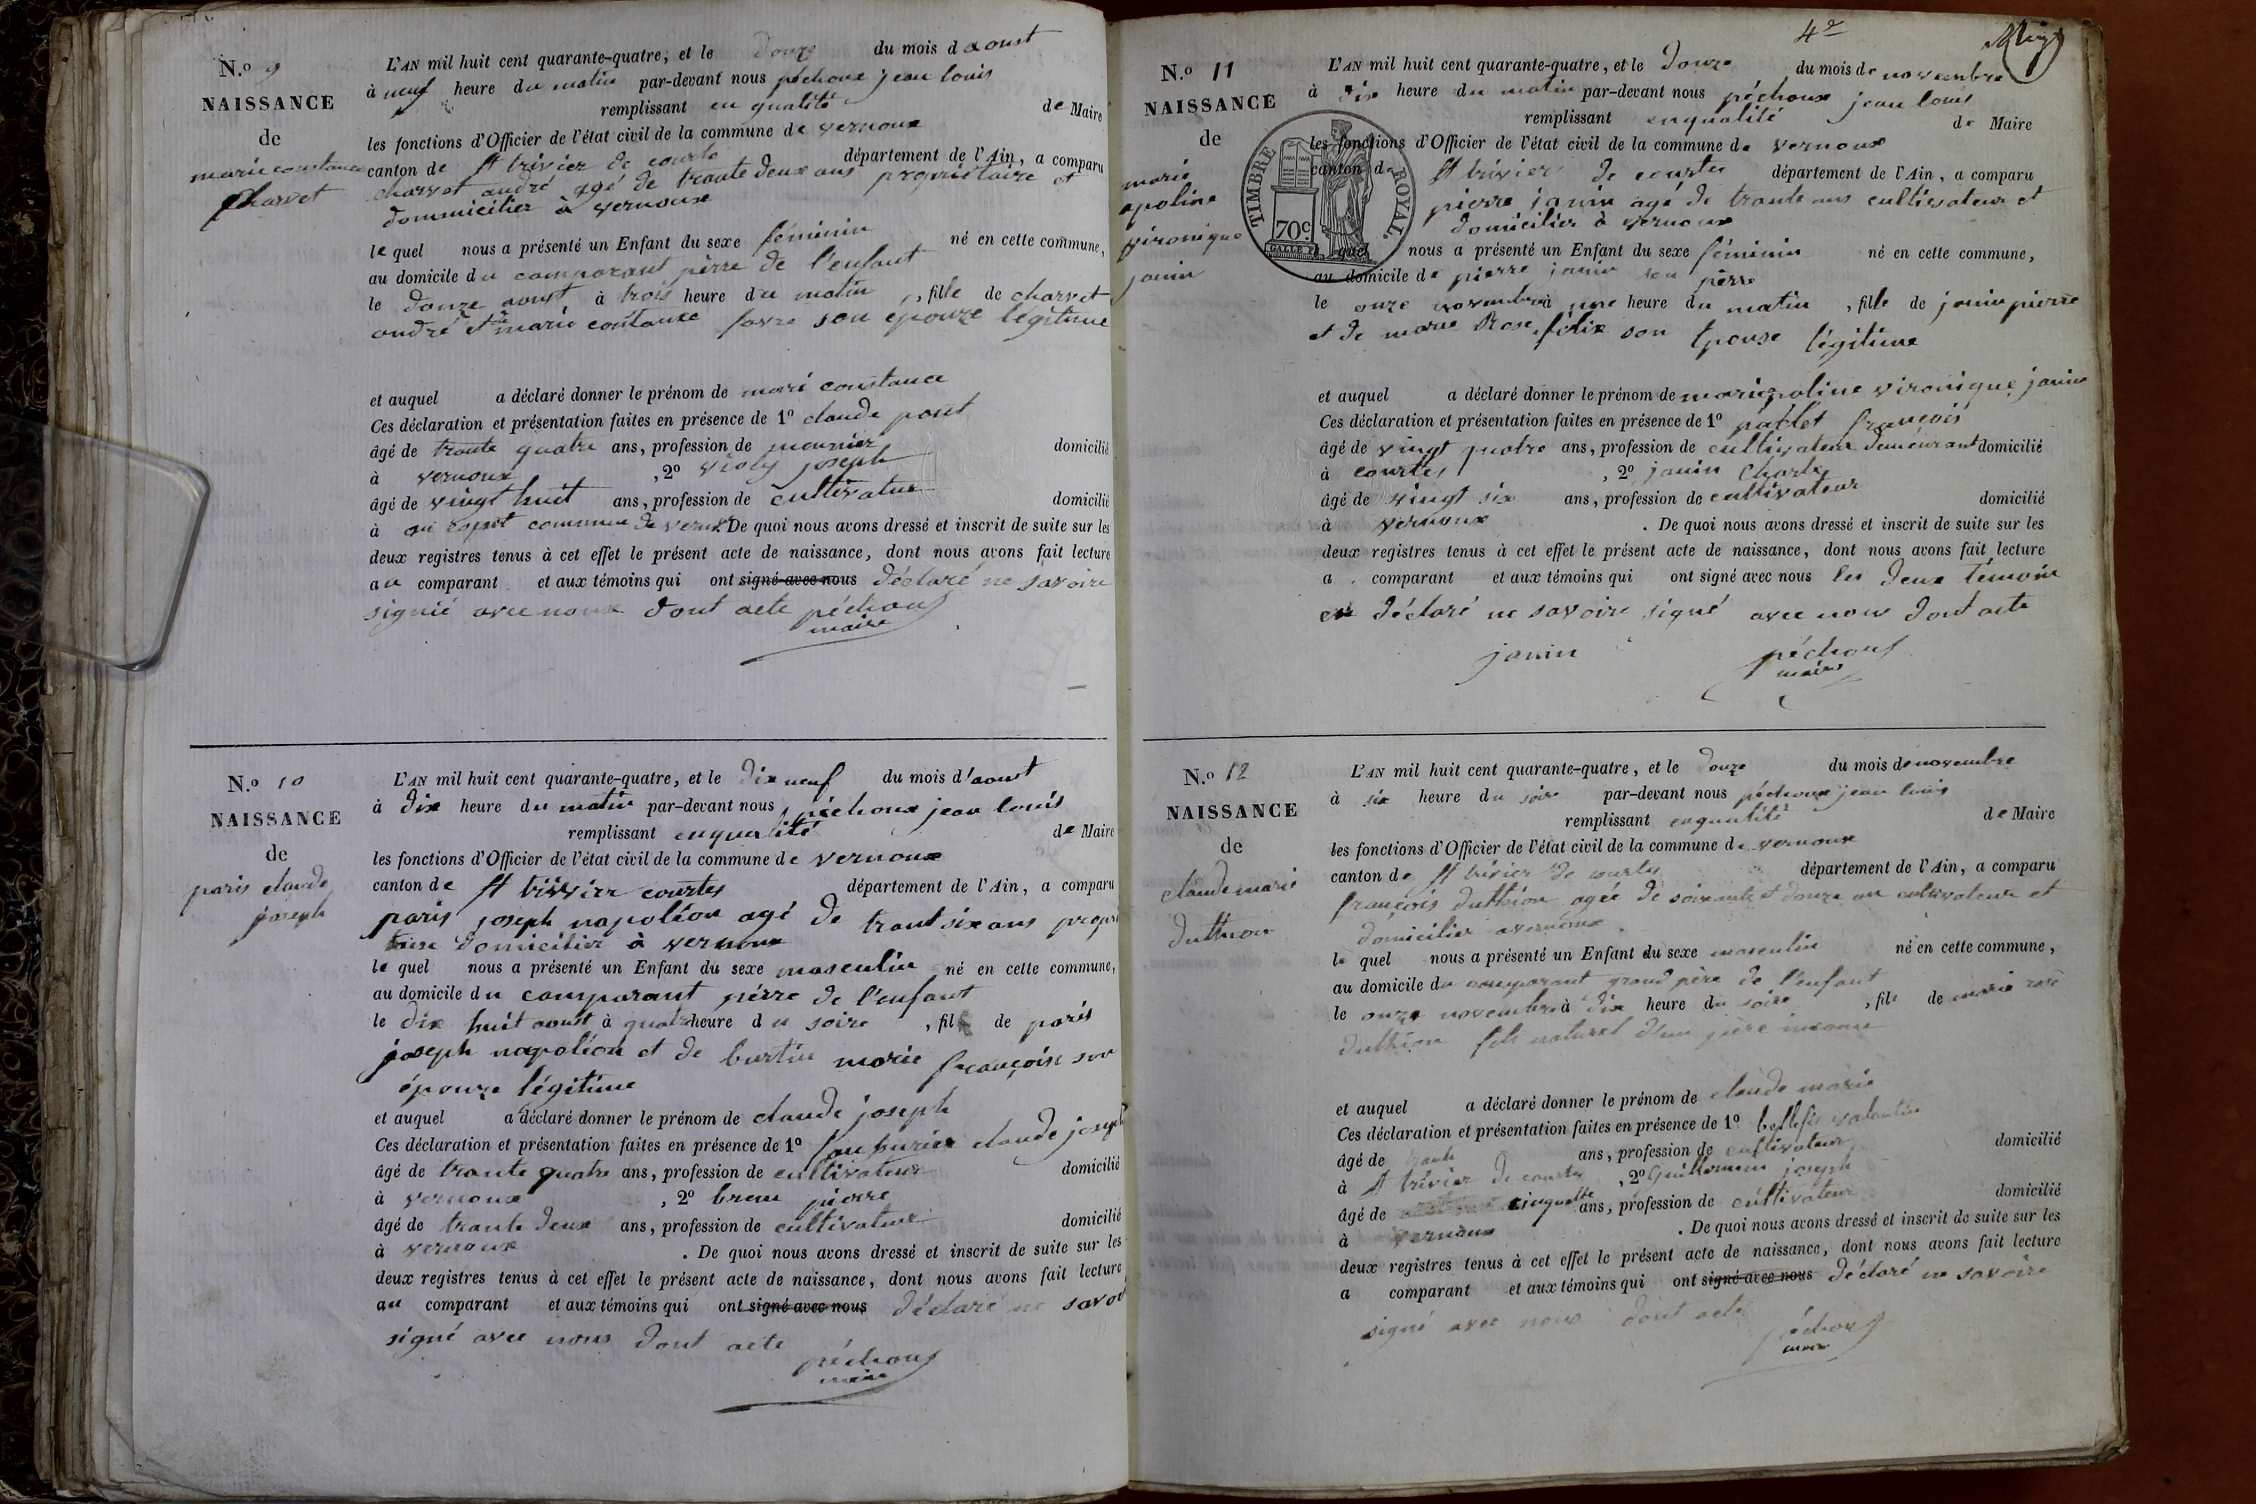 N.o 9
NAISSANCE
de
marie constance
Charvet
L'AN mil huit cent quarante-quatre, et le douze du mois d aoust
à neuf heure du matin par-devant nous péchoux jean louis
remplissant en qualité de Maire
les fonctions d'Officier de l'état civil de la commune de vernoux
canton de St trivier de courte département de l'Ain, a comparu
charvet andré agé de trante deux ans propriétaire et
dommicilier à vernoux
le quel nous a présenté un Enfant du sexe féminin né en cette commune,
au domicile du comparant pèrre de l'enfant
le douze aoust à trois heure du matin, fille de charvet
andré et marie constance favre son epouze légitime
et auquel a déclaré donner le prénom de marié constance
Ces déclaration et présentation faites en présence de 1o claude pont
âgé de trante quatre ans, profession de meunier domicilié
à vernoux, 2o violy joseph
âgé de vingt huit ans, profession de cultivatue domicilié
à commune de vernux De quoi nous avons dressé et inscrit de suite sur les
deux registres tenus à cet effet le présent acte de naissance, dont nous avons fait lecture
au comparant et aux témoins qui ont signé avec nous déclaré ne savoire
signié avec noux dont acte péchoux
maire
N.o 10
NAISSANCE
de
paris claude
joseph
L'AN mil huit cent quarante-quatre, et le dix neuf du mois d'aoust
à dix heure du matin par-devant nous péchoux jean louis
remplissant enqualité de Maire
les fonctions d'Officier de l'état civil de la commune de vernoux
canton de St trivier courtes département de l'Ain, a comparu
paris joseph napoléon agé de trant six ans propri
taire domicilier à vernoux
le quel nous a présenté un Enfant du sexe masculin né en cette commune,
au domicile du comparant pérre de l'enfant
le dix huit aoust à quatr heure du soire, fils de paris
joseph napoléon et de burtin marie françoise son
épouze légitime
et auquel a déclaré donner le prénom de claude joseph
Ces déclaration et présentation faites en présence de 1o claude joseph
âgé de trante quatre ans, profession de cultivateur domicilié
à vernoux, 2o pierre
âgé de trante deux ans, profession de cultivateur domicilié
à vernoux. De quoi nous avons dressé et inscrit de suite sur les
deux registres tenus à cet effet le présent acte de naissance, dont nous avons fait lecture
au comparant et aux témoins qui ont signé avec nous déclaré ne savoi
signé avec nous dont acte
péchoux
maire
4e
N.o 11
NAISSANCE
de
marie
apoline
vironique
janin
TIMBRE ROYAL
70c
L'AN mil huit cent quarante-quatre, et le douze du mois de novembre
à dix heure du matin par-devant nous péchoux jean louis
remplissant enqualité de Maire
les fonctions d'Officier de l'état civil de la commune de vernoux
canton de St trivier de courtes département de l'Ain, a comparu
pierre janin agé de trante ans cultivateur et
domicilier à vernoux
le quel nous a présenté un Enfant du sexe féminin né en cette commune,
au domicile de pierre janin son pèrre
le onze novembre à une heure du matin, fille de janin pierre
et de marie Rose félix son Epouse légitime
et auquel a déclaré donner le prénom de marie apoline vironique janin
Ces déclaration et présentation faites en présence de 1o françois
âgé de vingt quatre ans, profession de cultivateur demeurant domicilié
à courtes, 2o janin Charle
âgé de vingt six ans, profession de cultivateur domicilié
à vernoux. De quoi nous avons dressé et inscrit de suite sur les
deux registres tenus à cet effet le présent acte de naissance, dont nous avons fait lecture
a comparant et aux témoins qui ont signé avec nous les deux témoin
déclaré ne savoire signé avec nous dont acte
janin péchoux
maire
N.o 12
NAISSANCE
de
claude marie
duthion
L'AN mil huit cent quarante-quatre, et le douze du mois de novembre
à six heure du soire par-devant nous péchoux jean louis
remplissant enqualité de Maire
les fonctions d'Officier de l'état civil de la commune de vernoux
canton de St trivier de courtes département de l'Ain, a comparu
françois duthion agée de soixante et douze an cultivateur et
domicilier avernoux
le quel nous a présenté un Enfant du sexe masculin né en cette commune,
au domicile du comparant grand père de l'enfant
le onze novembre à dix heure du soire, fils de marie rose
duthion fils naturel d'un père inconnu
et auquel a déclaré donner le prénom de claude marie
Ces déclaration et présentation faites en présence de 1o valentin
âgé de trante ans, profession de cultivateur domicilié
à St trivier de courtes, 2o Guillermin joseph
âgé de cinquatte ans, profession de cultivateur domicilié
à vernoux. De quoi nous avons dressé et inscrit de suite sur les
deux registres tenus à cet effet le présent acte de naissance, dont nous avons fait lecture
a comparant et aux témoins qui ont signé avec nous déclaré ne savoire
signé avec nous dont acte
péchoux
maire